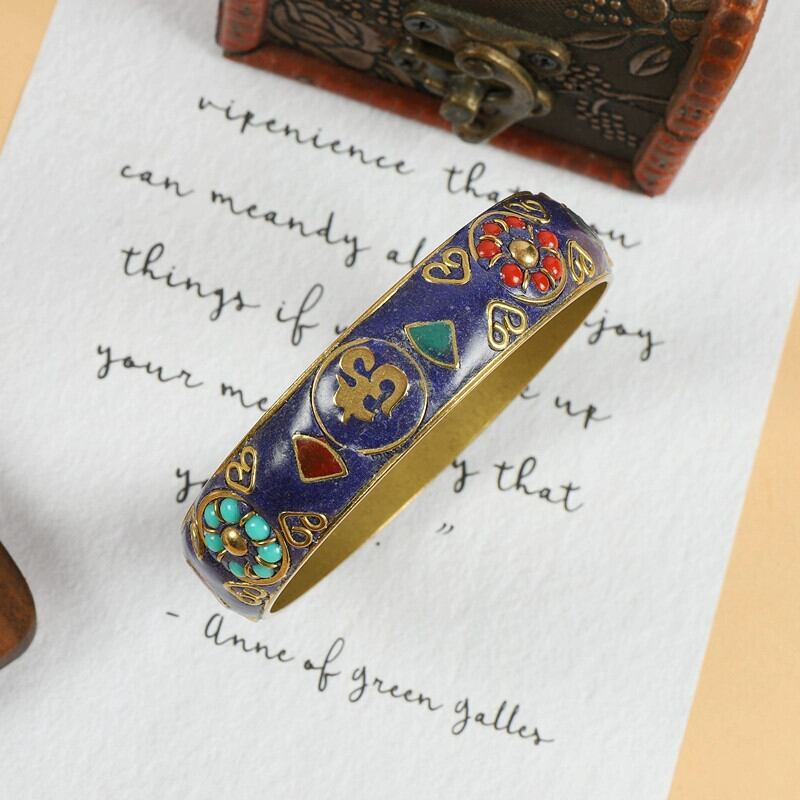 vipenience that you
can meandy al
things if joy
your me e up
y that
”
- Anne of green galles
ॐ